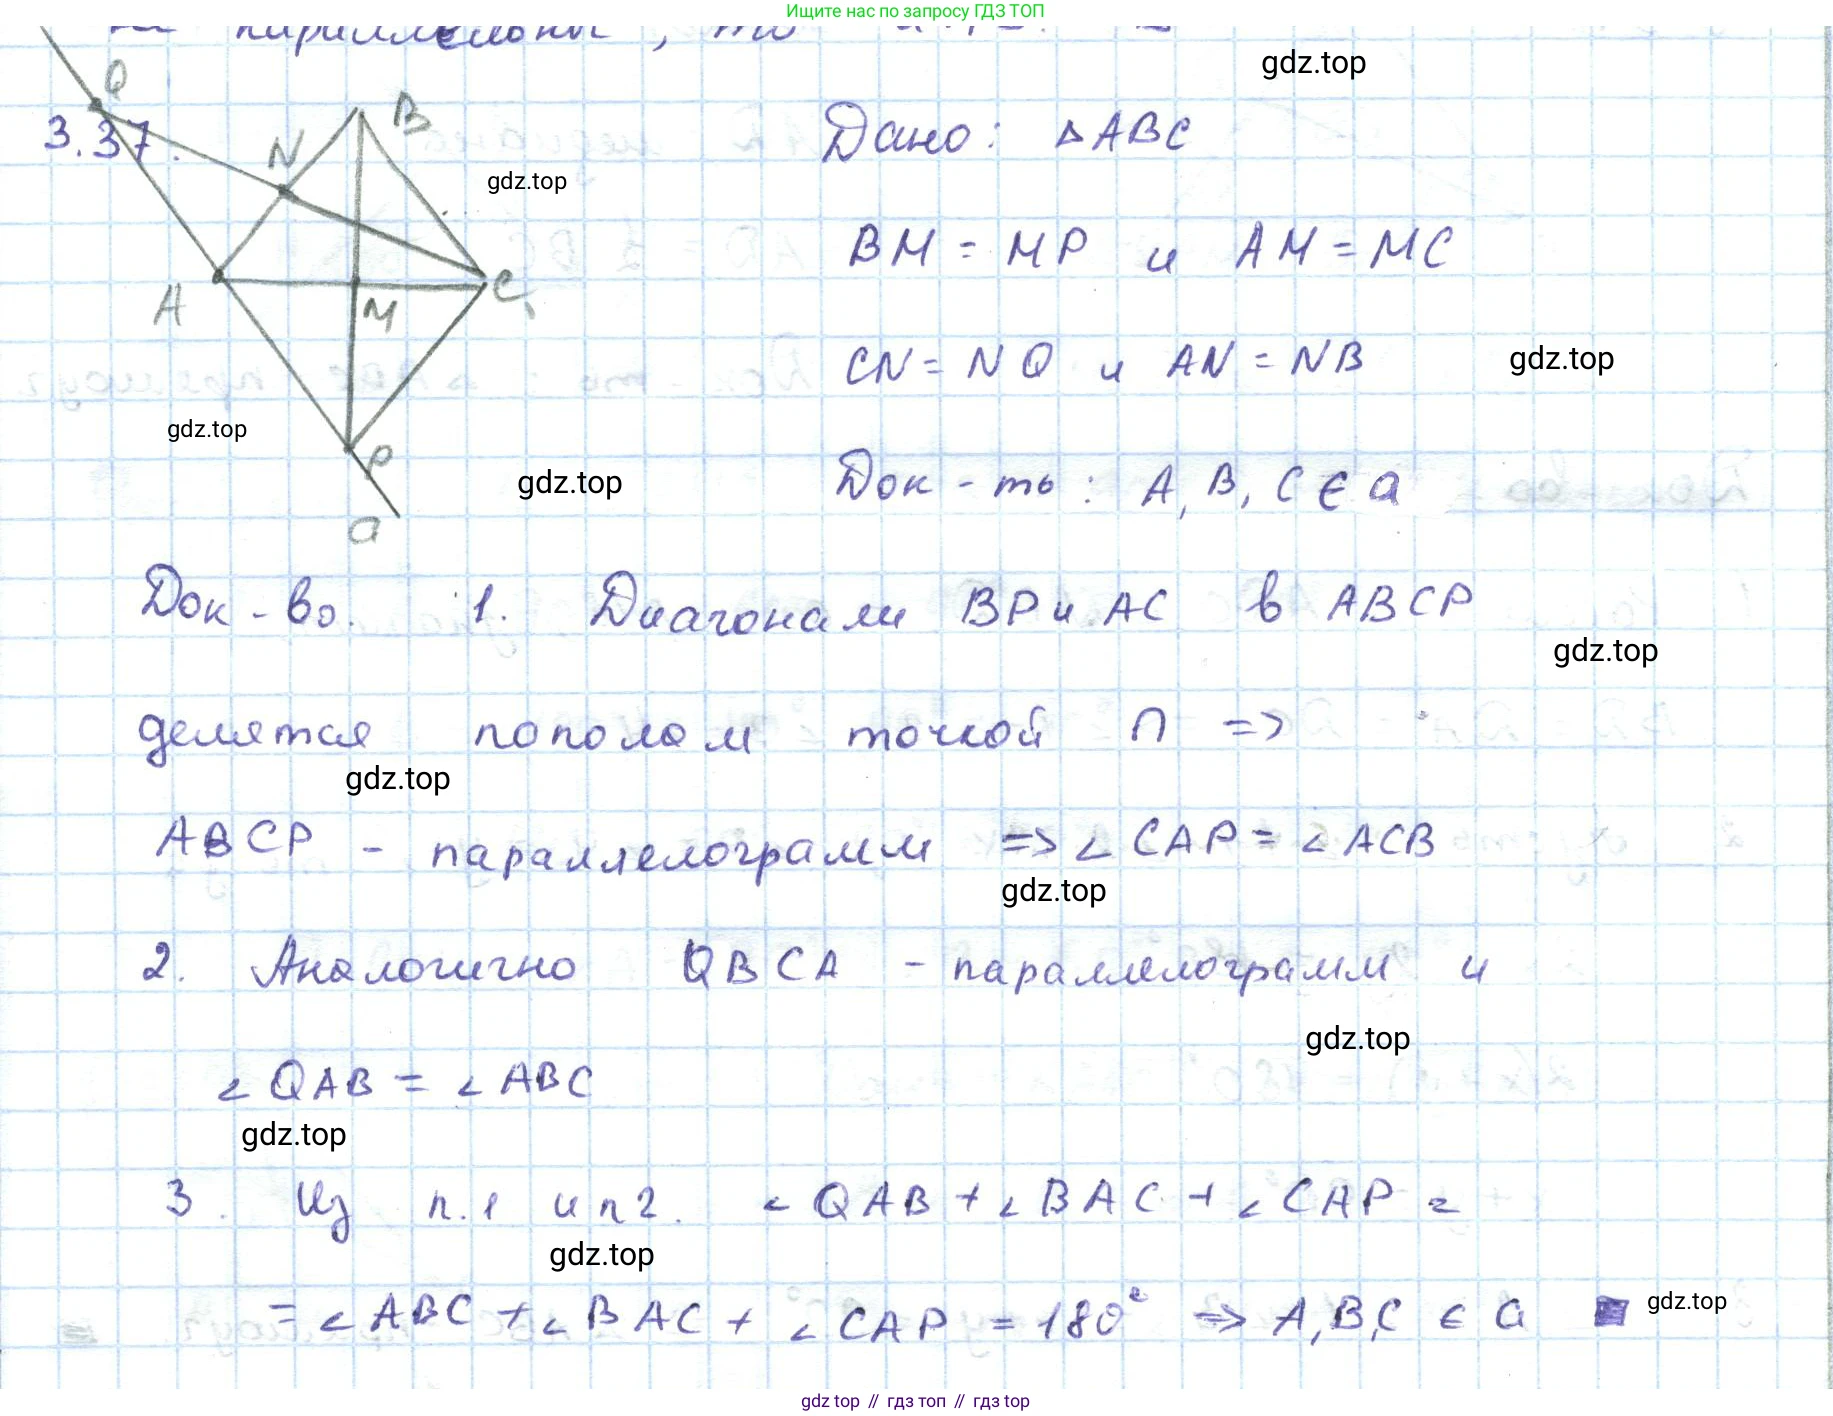 Ищите нас по запросу ГДЗ ТОП
gdz.top
Q
B
3.37.
N
gdz.top
Дано: △ABC
BM = MP и AM = MC
A
M
C
CN = NQ и AN = NB
gdz.top
gdz.top
P
gdz.top
Док-ть: A, B, C ∈ a
a
Док-во. 1. Диагонали BP и AC в ABCP
gdz.top
делятся пополам точкой П =>
gdz.top
ABCP - параллелограмм => ∠CAP = ∠ACB
gdz.top
2. Аналогично QBCA - параллелограмм и
gdz.top
∠QAB = ∠ABC
gdz.top
3. Из п.1 и п2. ∠QAB + ∠BAC + ∠CAP =
gdz.top
= ∠ABC + ∠BAC + ∠CAP = 180° => A, B, C ∈ a ■
gdz.top
gdz top // гдз топ // гдз top